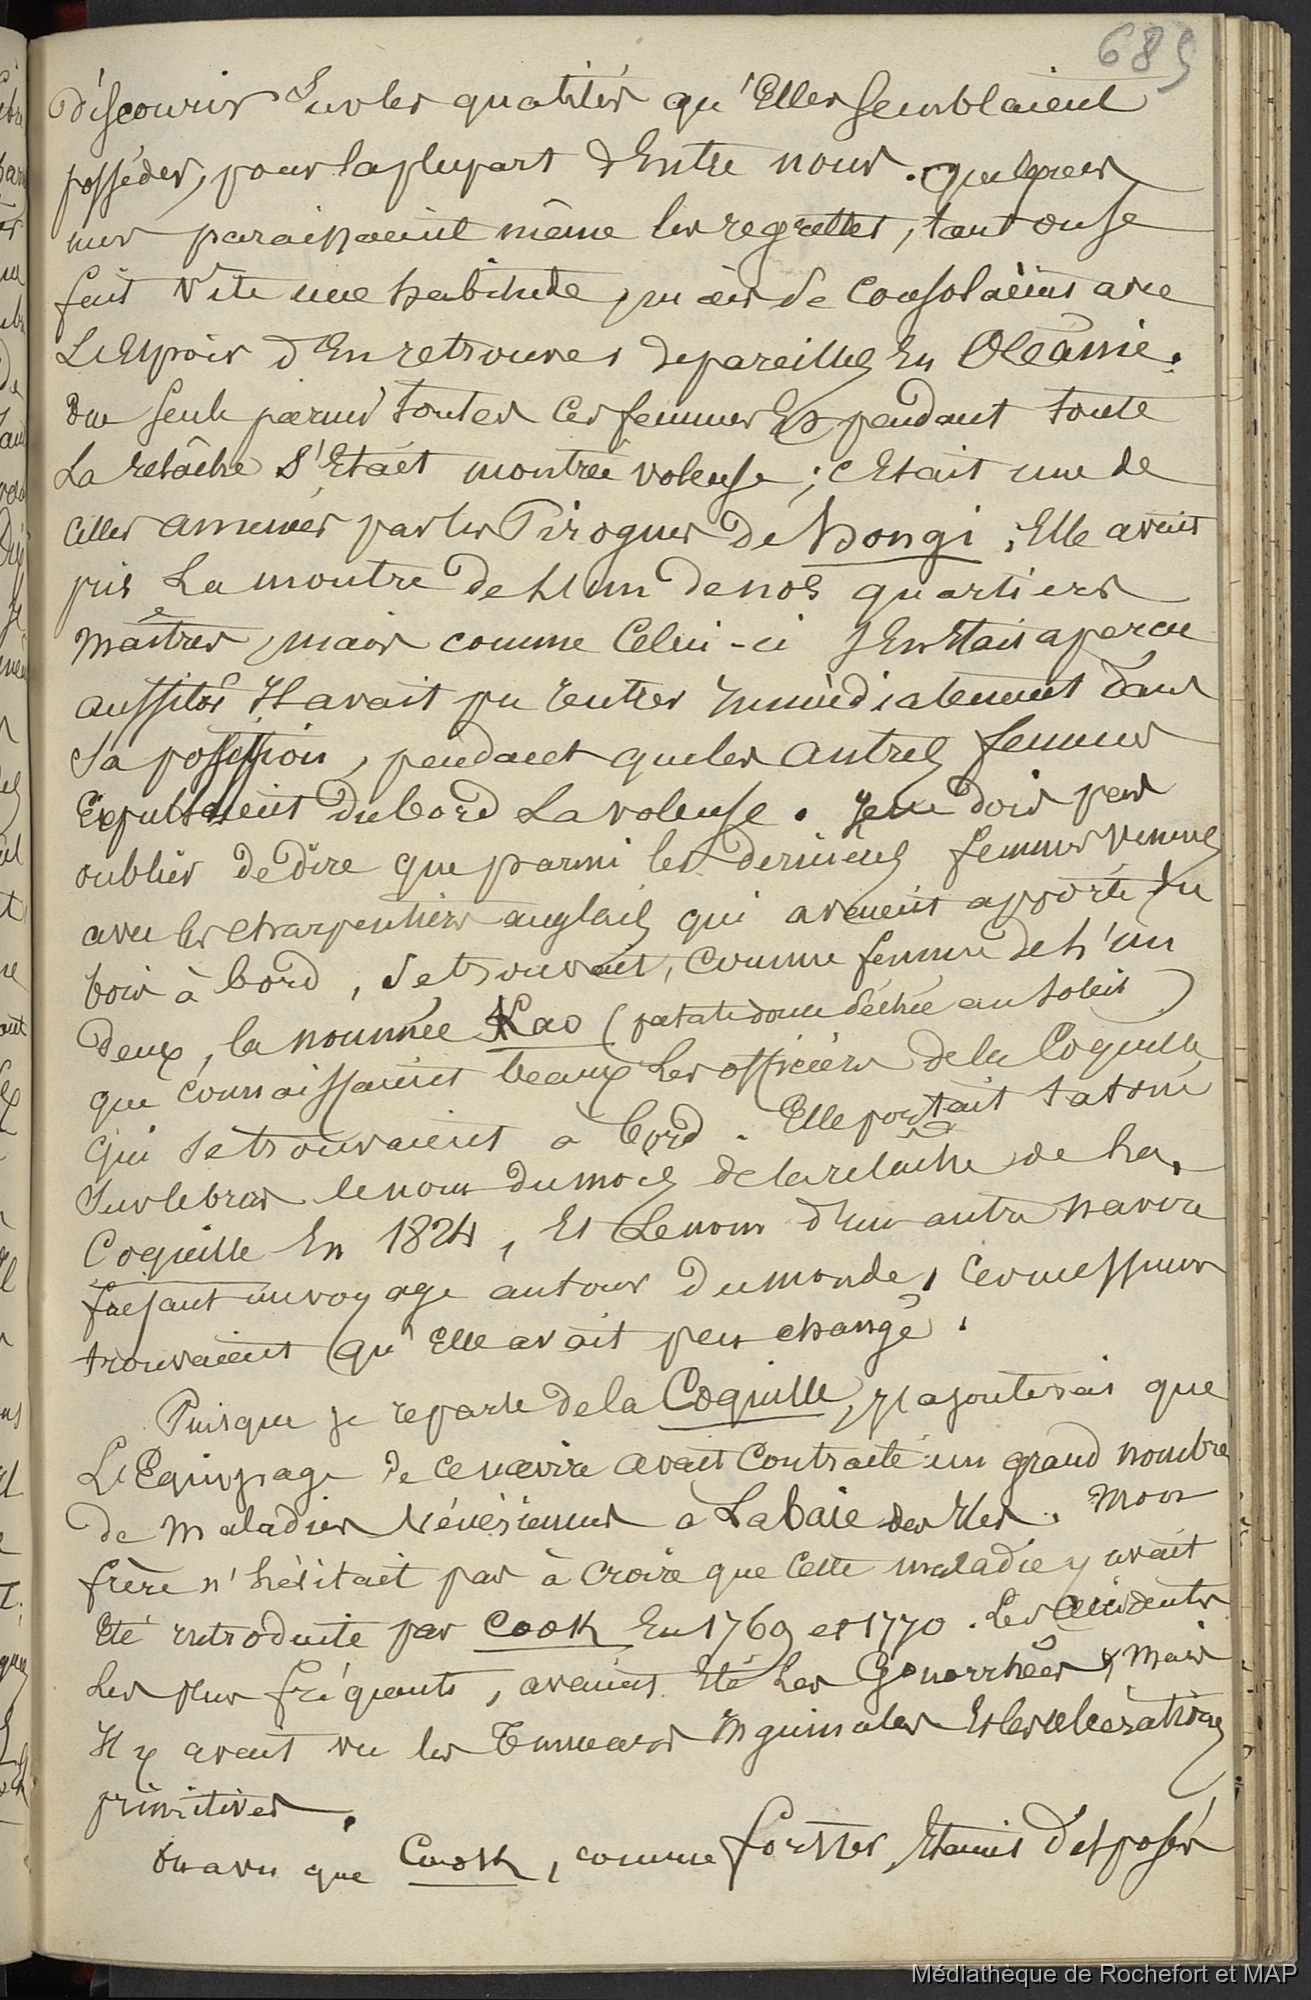 685
discourir sur les qualités qu'Elles semblaient
posséder, pour la plupart d'Entre nous. Quelques
uns paraissaient même les regretter, tant on se
fait vite une habitude, mais se consolaient avec
L'Espoir d'En retrouver de pareilles En Océanie.
Une seule parmi toutes ces femmes Et pendant toute
La relâche S'Etait montrée voleuse ; c'Etait une de
celles amenées par les Pirogues de Hongi ; Elle avait
pris La montre de L'un de nos quartiers
maîtres, mais comme Celui-ci s'en Etait aperçu
aussitôt Il avait pu rentrer Immédiatement dans
Sa possession, pendant que les autres femmes
Expulsaient du bord La voleuse. Je ne dois pas
oublier de dire que parmi les dernières femmes venues
avec les charpentiers anglais qui avaient apporté du
bois à bord, se trouvait, comme femme de L'un
deux, la nommée Kao (patate douce séchée au soleil)
que connaissaient beaucp Les officiers de la Coquille
qui se trouvaient à bord. Elle portait tatoué
sur le bras le nom du mois de la relâche de La
Coquille En 1824, Et Le nom d'un autre navire
faisant un voyage autour du monde, ces messieurs
trouvaient qu'Elle avait peu changé.
Puisque je reparle de la Coquille, j'ajouterais que
L'Equipage de ce navire avait contracté un grand nombre
de maladies Vénériennes à La baie des Iles. Mon
frère n'hésitait pas à croire que cette maladie y avait
Eté introduite par Cook En 1769 et 1770. Les accidents
Les plus fréquents, avaient Eté Les Gonorrhées, mais
Il y avait vu les Tumeurs Inguinales Et les ulcérations
primitives.
On a vu que Cook, comme Forster, Etaient disposés
Médiathèque de Rochefort et MAP